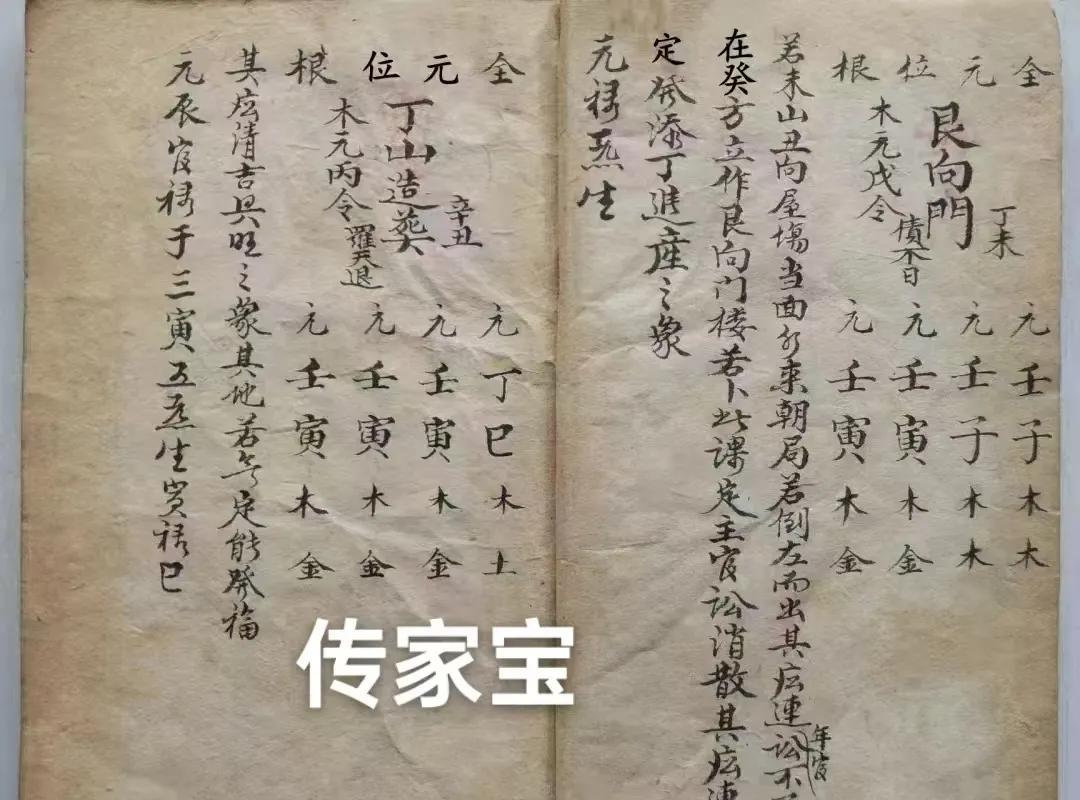 全元壬子木木
元元壬子木木
丁未
艮向門
位元壬寅木金
木元戊令
根元壬寅木金
若未山丑向屋場当面水来朝局若倒左而出其連訟不
年官
在癸方立作艮向门楼若卜此课定主官訟消散其連
定発添丁進産之象
元禄生
全元丁巳木土
元元壬寅木金
辛丑
丁山造葬
位元壬寅木金
木元丙令
羅天退
根元壬寅木金
其清吉具旺之象其地若定能発福
元辰官禄于三寅五生寅禄巳
传家宝